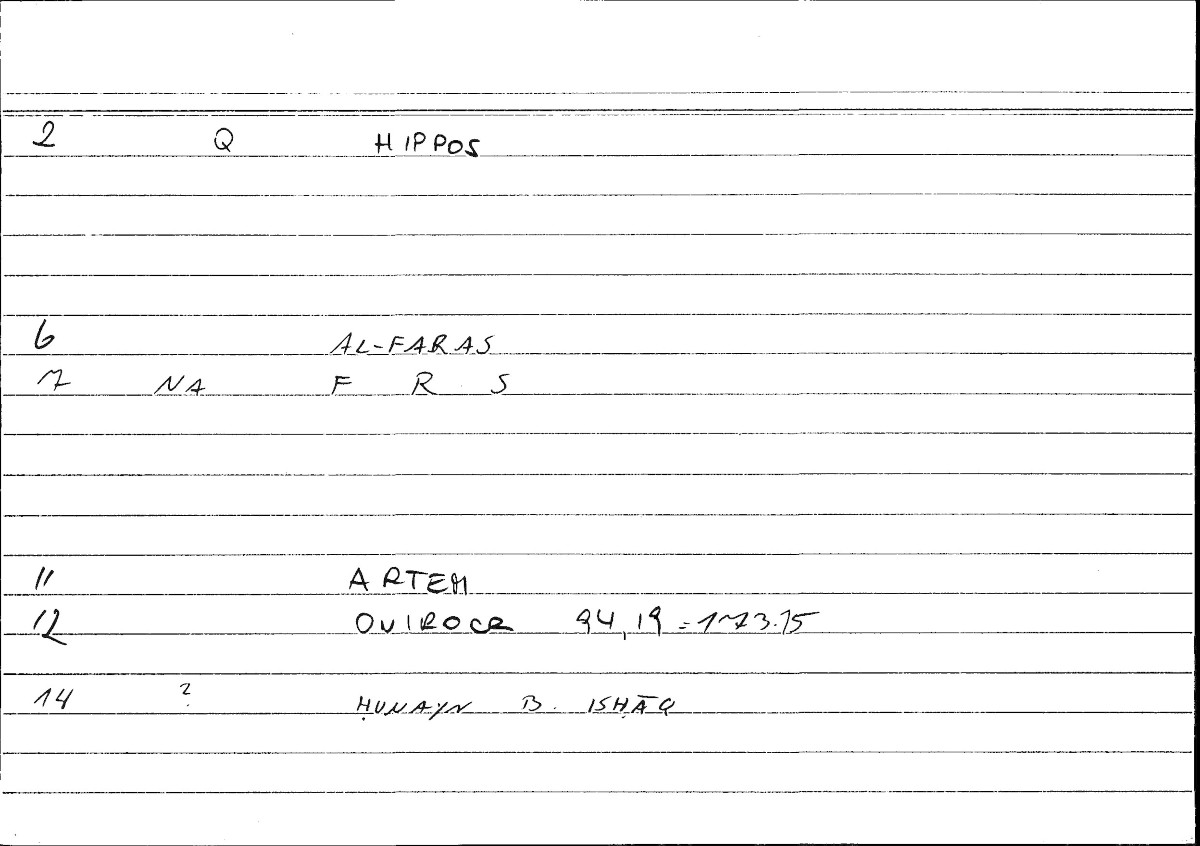 2 Q HIPPOS
6 AL-FARAS
7 NA F R S
11 ARTEM
12 OVIROCR 94,19 = 173.15
14 ? ḤUNAYN B. ISḤĀQ